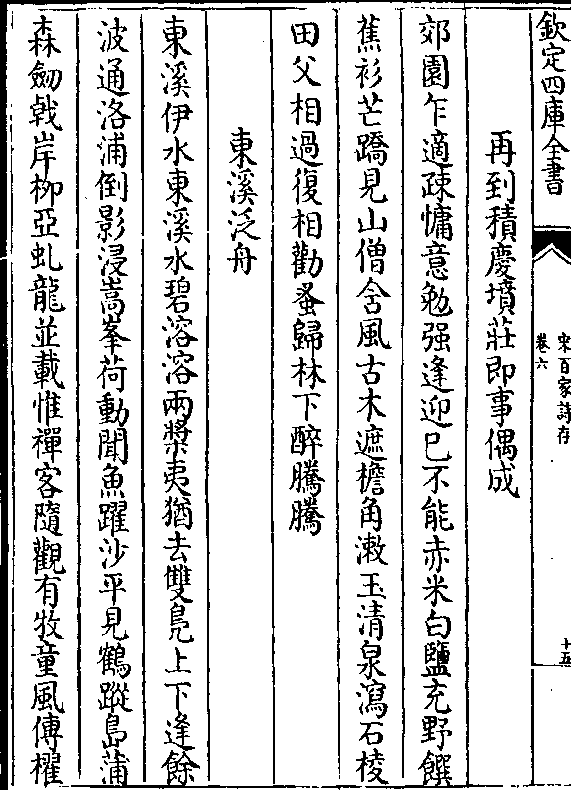 欽定四庫全書
宋百家詩存
卷六
十五
再到積慶墳莊即事偶成
郊園乍適疎慵意勉强逢迎已不能赤米白鹽充野饌
蕉衫芒蹻見山僧舍風古木遮檐角漱玉清泉瀉石棱
田父相過復相勸蚤歸林下醉騰騰
東溪泛舟
東溪伊水東溪水碧溶溶兩槳夷猶去雙鳧上下逢餘
波通洛浦倒影浸嵩峯荷動聞魚躍沙平見鶴蹤島蒲
森劒戟岸柳亞虬龍並載惟禪客隨觀有牧童風傳櫂